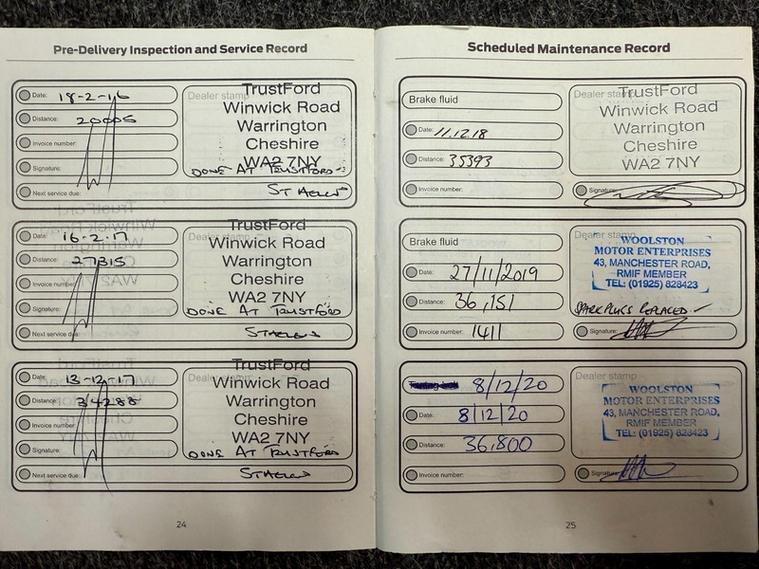 Pre-Delivery Inspection and Service Record
Date: 18-2-16
Distance: 20005
Invoice number:
Signature:
Next service due:
Dealer stamp
TrustFord
Winwick Road
Warrington
Cheshire
WA2 7NY
DONE AT TRUSTFORD
ST HELENS
Date: 16-2-17
Distance: 27315
Invoice number:
Signature:
Next service due:
Dealer stamp
TrustFord
Winwick Road
Warrington
Cheshire
WA2 7NY
DONE AT TRUSTFORD
ST HELENS
Date: 13-12-17
Distance: 34288
Invoice number:
Signature:
Next service due:
Dealer stamp
TrustFord
Winwick Road
Warrington
Cheshire
WA2 7NY
DONE AT TRUSTFORD
ST HELENS
24
Scheduled Maintenance Record
Brake fluid
Date: 11.12.18
Distance: 35393
Invoice number:
Dealer stamp
TrustFord
Winwick Road
Warrington
Cheshire
WA2 7NY
Signature:
Brake fluid
Date: 27/11/2019
Distance: 36,151
Invoice number: 1411
Dealer stamp
WOOLSTON
MOTOR ENTERPRISES
43, MANCHESTER ROAD,
RMIF MEMBER
TEL: (01925) 828423
SPARK PLUGS REPLACED
Signature:
8/12/20
Date: 8/12/20
Distance: 36,800
Invoice number:
Dealer stamp
WOOLSTON
MOTOR ENTERPRISES
43, MANCHESTER ROAD,
RMIF MEMBER
TEL: (01925) 828423
Signature:
25